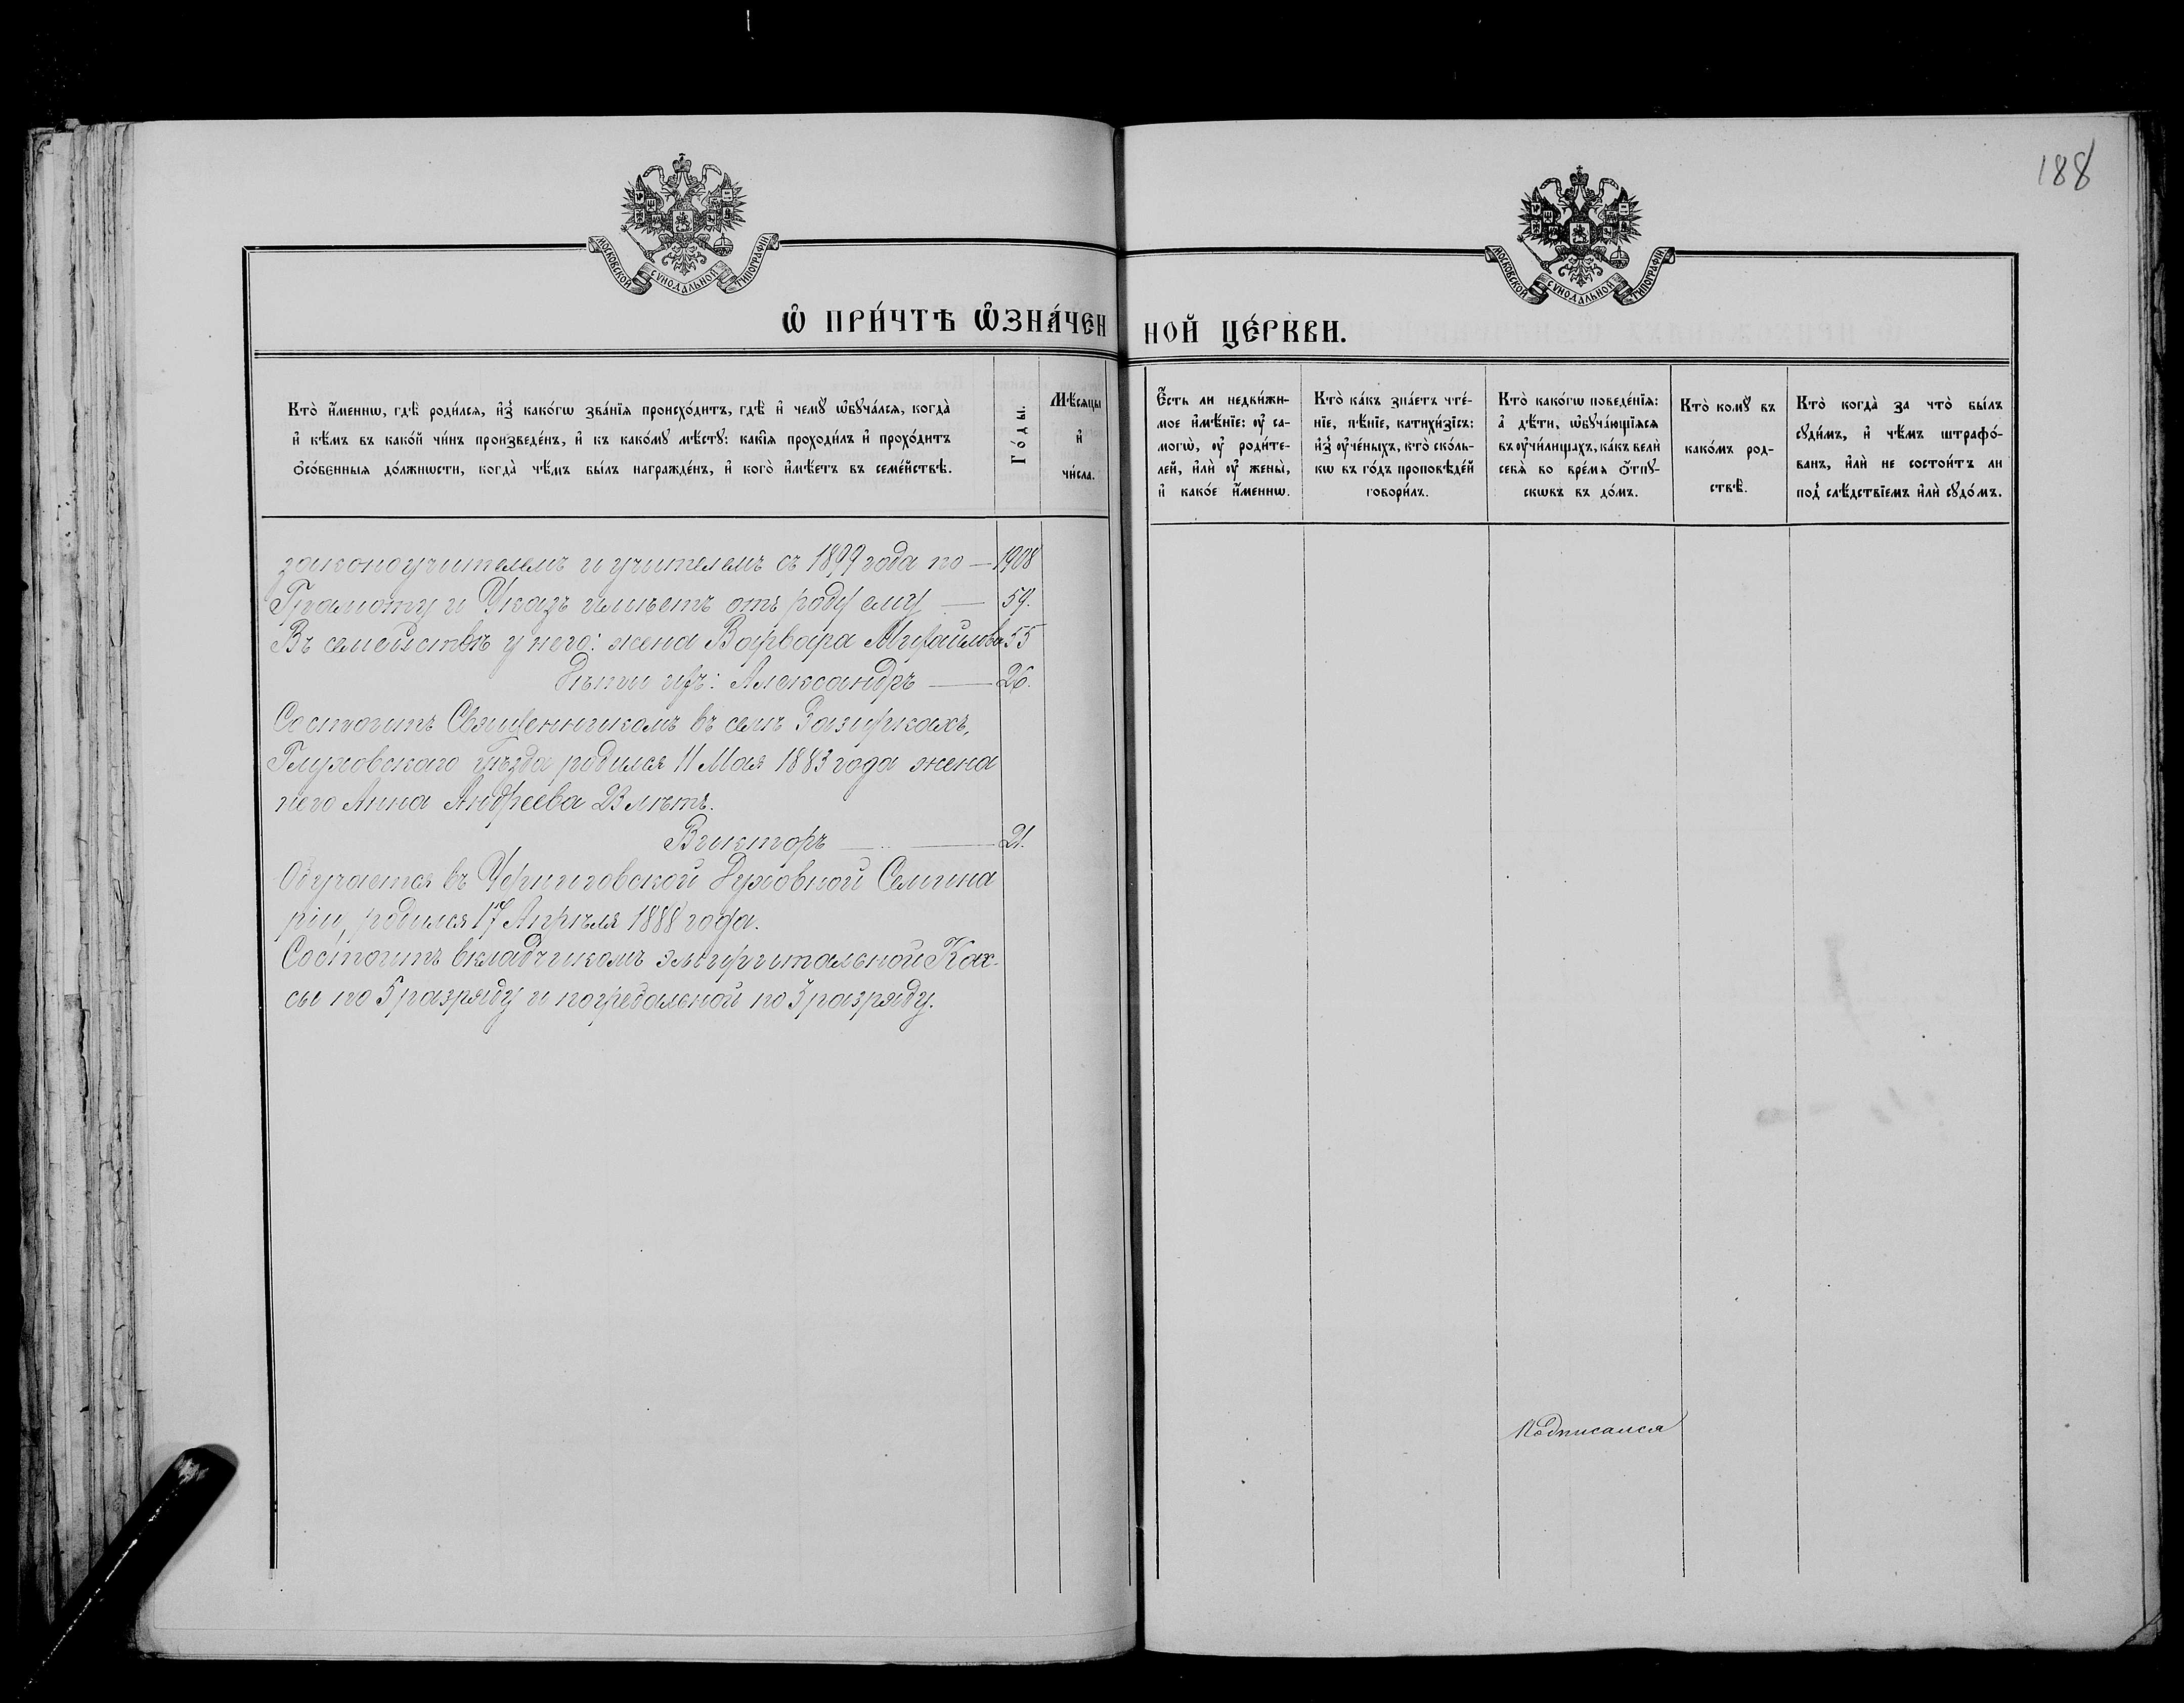 188
МОСКОВСКОЙ СУНОДАЛЬНОЙ ТИПОГРАФІИ
МОСКОВСКОЙ СУНОДАЛЬНОЙ ТИПОГРАФІИ
Ѡ ПРИ́ЧТѢ Ѡ҆ЗНА́ЧЕННОЙ ЦЕ́РКВИ.
Кто̀ и҆́менно, гдѣ̀ роди́лся, и҆з̾ како́гѡ зва́нїя происхо́дитъ, гдѣ̀ и҆ чемꙋ̀ ѡ҆бꙋча́лся, когда̀
и҆ кѣ́мъ въ како́й чи́нъ произведе́нъ, и҆ къ како́мꙋ мѣ́стꙋ: какі̑я проходи́лъ и҆ прохо́дитъ
ѻ҆со́бенныя до́лжности, когда̀ чѣ́мъ бы́лъ награжде́нъ, и҆ кого̀ и҆мѣ́етъ въ семе́йствѣ.
Го́ды.
Мѣ́сяцы
и҆
чи́сла.
Є҆́сть ли недви́жи-
мое и҆мѣ́нїе: ᲂу҆ са-
могѡ̀, ᲂу҆ роди́те-
лей, и҆лѝ ᲂу҆ жены̀,
и҆ како́е и҆́менно.
Кто̀ ка́къ зна́етъ чте́-
нїе, пѣ́нїе, катихи́зїсъ:
и҆з̾ ᲂу҆че́ныхъ, кто̀ ско́ль-
кѡ въ го́дъ проповѣ́дей
говори́лъ.
Кто̀ како́гѡ поведе́нїя:
а҆ дѣ́ти, ѡ҆бꙋча́ющїяся
въ ᲂу҆чи́лищахъ, ка́къ велѝ
себя̀ во вре́мя ѻ҆́тпꙋ-
сковъ въ до́мъ.
Кто̀ комꙋ̀ въ
како́мъ род-
ствѣ̀.
Кто̀ когда̀ за что̀ бы́лъ
сꙋди́мъ, и҆ чѣ́мъ штрафо́-
ванъ, и҆лѝ не состои́тъ ли
под̾ слѣ́дствїемъ и҆лѝ сꙋдо́мъ.
законоучителемъ и учителемъ съ 1899 года по — 1908
Грамоту и Указъ имѣетъ отъ роду ему — 59.
Въ семействѣ у него: жена Варвара Михайлова 55
Дѣти ихъ: Александръ — 26.
Состоитъ Священникомъ въ селѣ Зазиркахъ,
Глуховскаго уѣзда родился 11 Мая 1883 года жена
него Анна Андреева 23 лѣтъ.
Викторъ — 21.
Обучается въ Черниговской Духовной Семина
ріи, родился 17 Апрѣля 1888 года.
Состоитъ вкладчикомъ эмиритальной Кас-
сы по 5 разряду и погребальной по 3 разряду.
Подписался